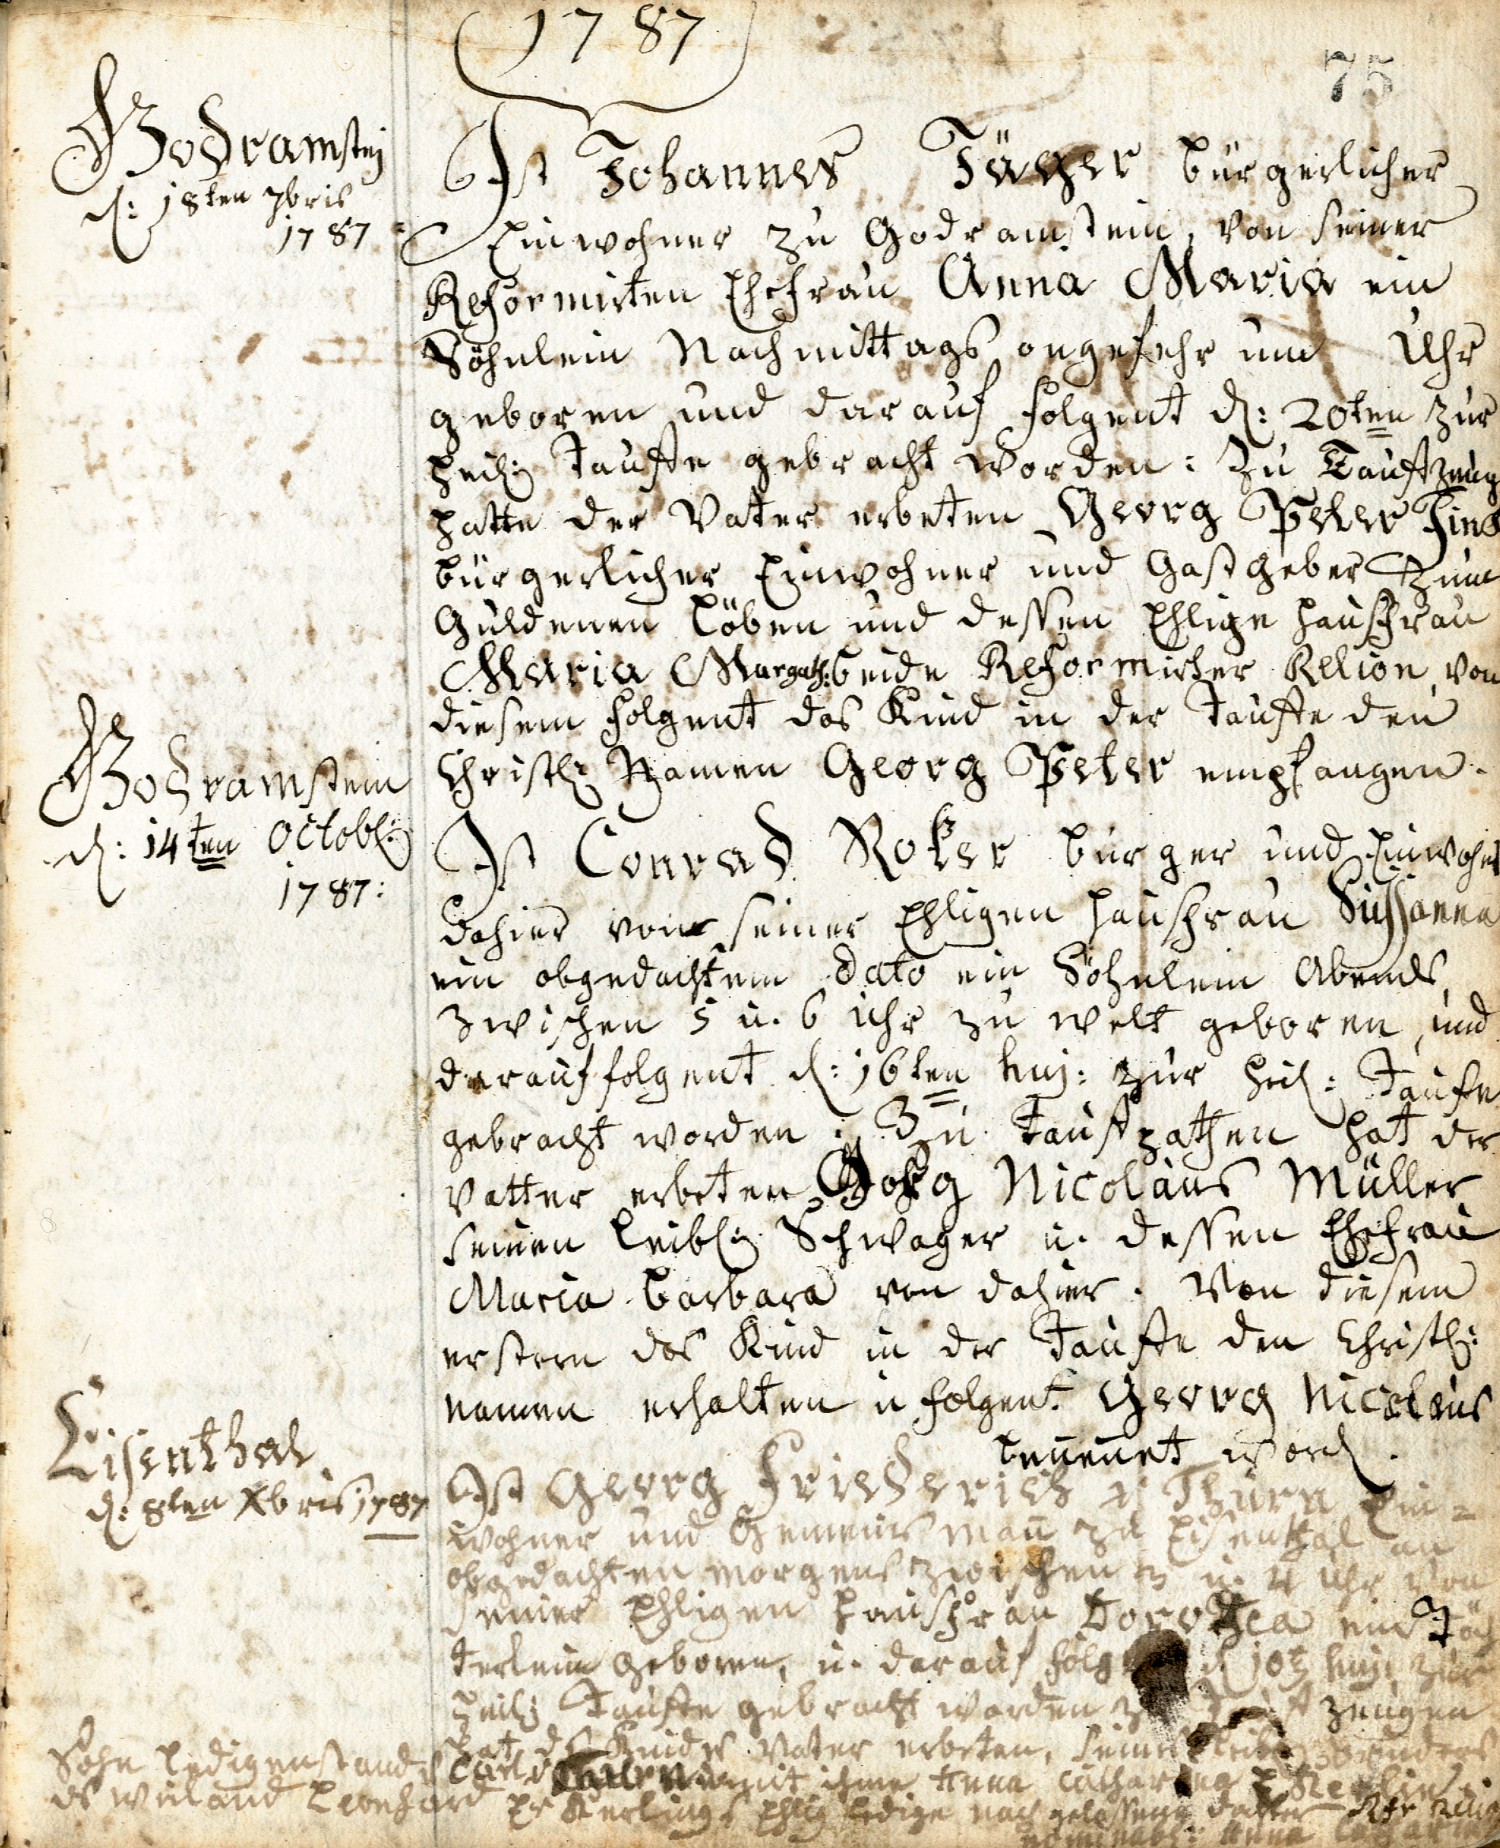 1787
75
Godramstein
d: 18ten 7bris
1787
Ist Johannes Jäger bürgerlicher
Einwohner zu Godramstein, von seiner
Reformirten Ehefrau Anna Maria ein
Söhnlein Nachmittags ongefehr um Uhr
geboren und darauf folgent d: 20ten zur
heil: Tauffe gebracht worden: zu Taufzeug
hatte der Vater erbeten Georg Peter
bürgerlicher Einwohner und Gastgeber zum
Guldenen Löben und dessen Ehlige Hausfrau
Maria Margath: beide Reformirter Relion, von
diesem folgent das Kind in der Tauffe den
Christl: Namen Georg Peter empfangen.
Godramstein
d: 14ten Octobr:
1787:
Ist Conrad Roker burger und Einwohner
dahier von seiner Ehligen Hausfrau Sussanna
ein obgedachtem dato ein Söhnlein Abends
zwischen 5 u. 6 uhr zu welt geboren, und
darauf folgent d: 16ten huj: zur heil: Taufe
gebracht worden: Zu Taufpathen hat der
Vatter erbeten Georg Nicolaus Müller
seinen leibl: Schwager u. dessen Ehefrau
Maria Barbara von dahier. Von diesem
erstern das Kind in der Tauffe den Christl:
namen erhalten u folgent Georg Nicolaus
benennet word.
Eisenthal
d: 8ten Xbris 1787
Ist Georg Friederich Thürn Ein=
wohner und Gemeinsmañ zu Eisenthal an
obgedachten morgens zwischen 3 u. 4 Uhr von
seiner Ehligen Hausfrau Dorothea ein Töch
terlein geboren, u. darauf folg d 10t huj: zur
heil: Tauffe gebracht worden zeugen
hat des Kindes Vater erbeten, seines
Sohn ledigenstand Carl mit ihme Anna Catharina
des weiland Leonhard Ehlig ledige nach gelassene dochter